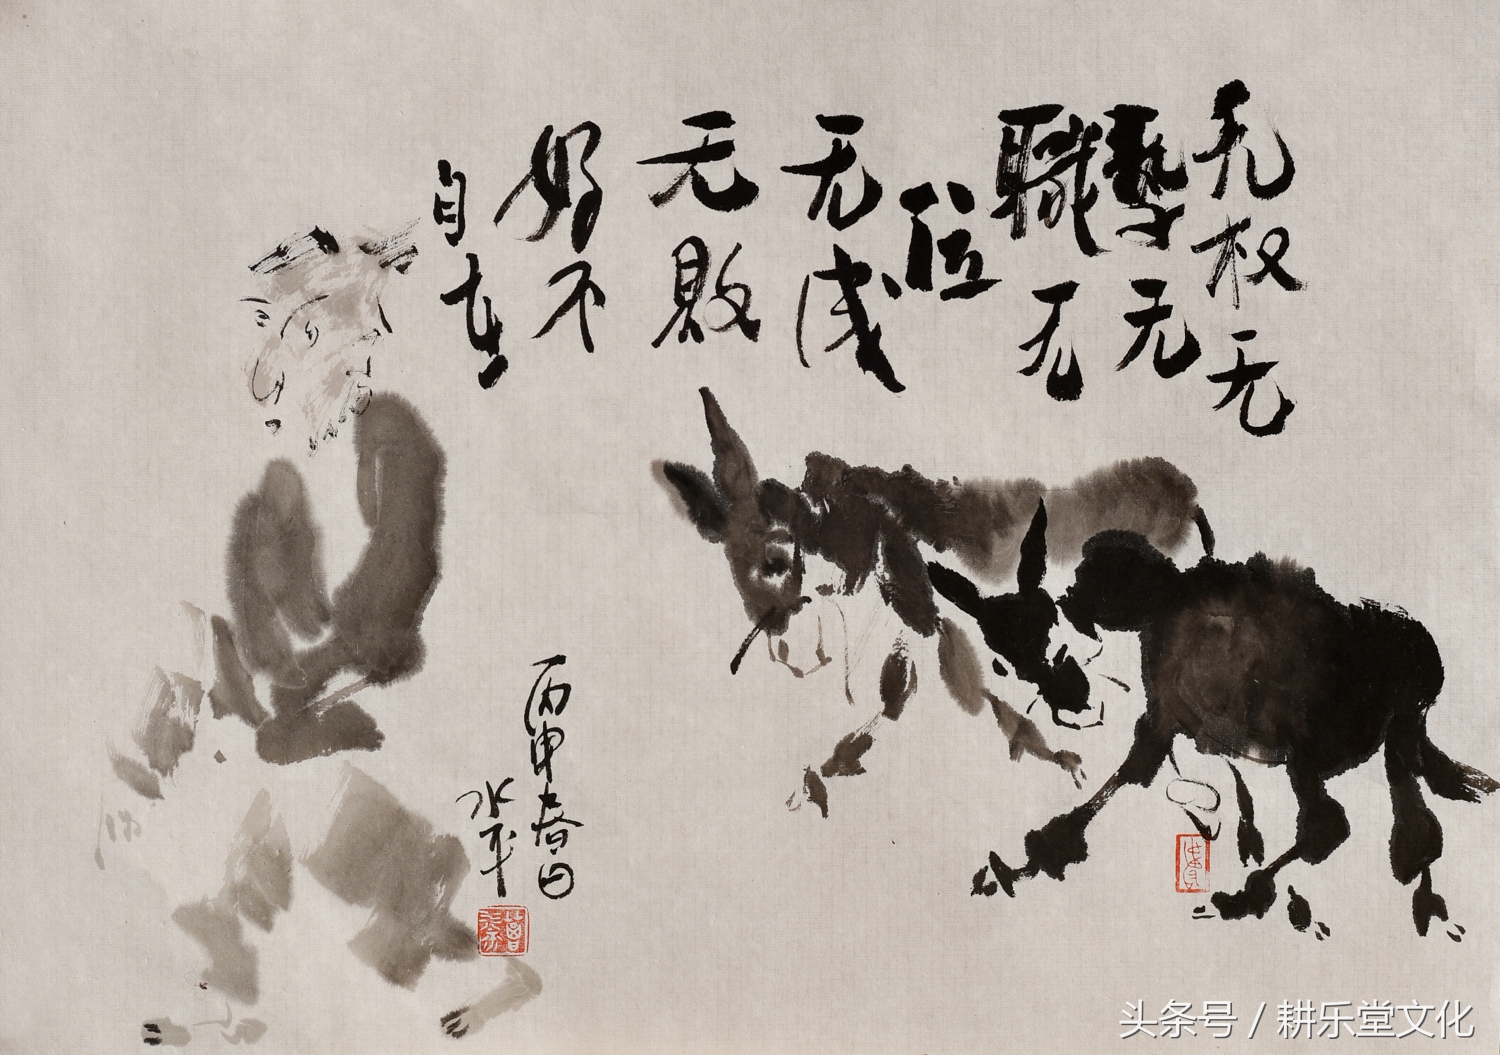 无权无
势无
职无
位
无成
无败
好不
自在
丙申春日
水平
头条号 / 耕乐堂文化